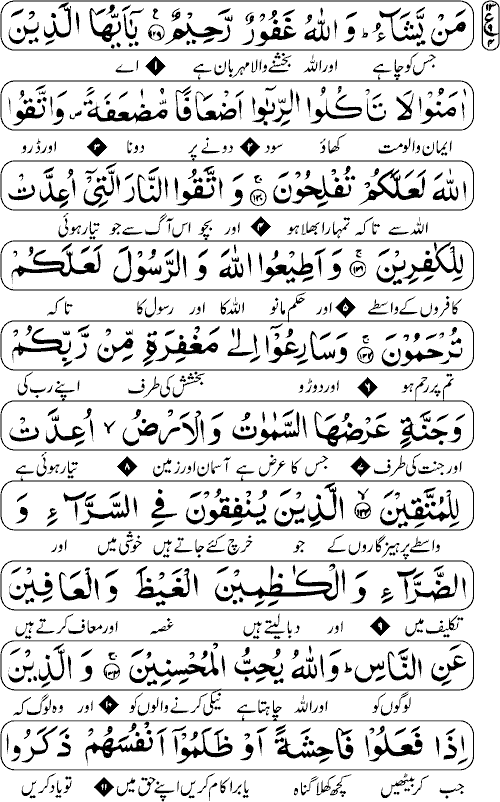 مَنْ يَّشَآءُ ؕ وَ اللّٰهُ غَفُوْرٌ رَّحِيْمٌ ﴿۱۲۹﴾ يٰۤاَيُّهَا الَّذِيْنَ
جس کو چاہے اور اللہ بخشنے والا مہربان ہے ۱ اے
اٰمَنُوْا لَا تَاْكُلُوا الرِّبٰۤوا اَضْعَافًا مُّضٰعَفَةً ۪ وَّ اتَّقُوا
ایمان والو مت کھاؤ سود ۲ دونے پر دونا ۳ اور ڈرو
اللّٰهَ لَعَلَّكُمْ تُفْلِحُوْنَ ﴿۱۳۰﴾ وَ اتَّقُوا النَّارَ الَّتِيْۤ اُعِدَّتْ
اللہ سے تاکہ تمہارا بھلا ہو ۴ اور بچو اس آگ سے جو تیار ہوئی
لِلْكٰفِرِيْنَ ﴿۱۳۱﴾ وَ اَطِيْعُوا اللّٰهَ وَ الرَّسُوْلَ لَعَلَّكُمْ
کافروں کے واسطے ۵ اور حکم مانو اللہ کا اور رسول کا تاکہ
تُرْحَمُوْنَ ﴿۱۳۲﴾ وَسَارِعُوْۤا اِلٰى مَغْفِرَةٍ مِّنْ رَّبِّكُمْ
تم پر رحم ہو ۶ اور دوڑو بخشش کی طرف اپنے رب کی
وَ جَنَّةٍ عَرْضُهَا السَّمٰوٰتُ وَ الْاَرْضُ ۙ اُعِدَّتْ
اور جنت کی طرف ۷ جس کا عرض ہے آسمان اور زمین ۸ تیار ہوئی ہے
لِلْمُتَّقِيْنَ ﴿۱۳۳﴾ الَّذِيْنَ يُنْفِقُوْنَ فِي السَّرَّآءِ وَ
واسطے پرہیزگاروں کے جو خرچ کئے جاتے ہیں خوشی میں اور
الضَّرَّآءِ وَ الْكٰظِمِيْنَ الْغَيْظَ وَ الْعَافِيْنَ
تکلیف میں ۹ اور دبا لیتے ہیں غصہ اور معاف کرتے ہیں
عَنِ النَّاسِ ؕ وَاللّٰهُ يُحِبُّ الْمُحْسِنِيْنَ ﴿۱۳۴﴾ وَ الَّذِيْنَ
لوگوں کو اور اللہ چاہتا ہے نیکی کرنے والوں کو ۱۰ اور وہ لوگ کہ
اِذَا فَعَلُوْا فَاحِشَةً اَوْ ظَلَمُوْۤا اَنْفُسَهُمْ ذَكَرُوا
جب کر بیٹھیں کچھ کھلا گناہ یا برا کام کریں اپنے حق میں ۱۱ تو یاد کریں